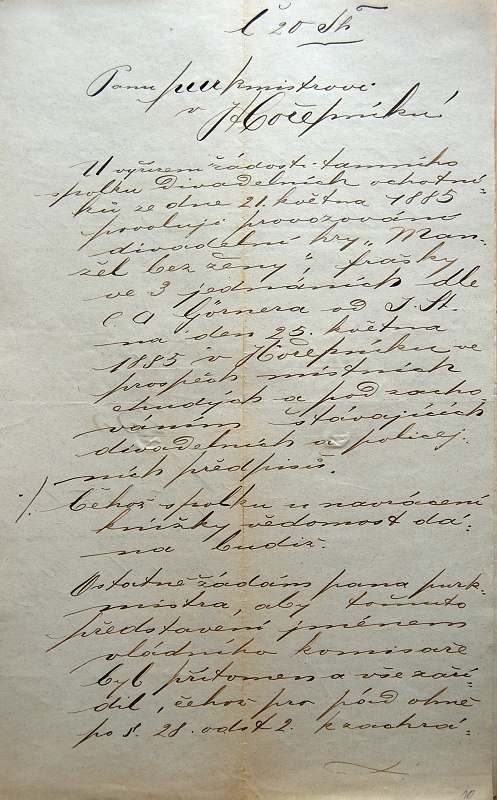 č 20 Th
Panu purkmistrovi
v Hořepníku
U vyřízení žádosti tamního
spolku divadelních ochotní-
ků ze dne 21. května 1885
povoluji provozování
divadelní hry „Man-
žel bez ženy", frašky
ve 3 jednáních dle
C. A Görnera od J. St.
na den 25. května
1885 v Hořepníku ve
prospěch místních
chudých a pod zacho-
váním stávajících
divadelních a policej-
ních předpisů.
./. Čehož spolku u navrácení
knížky vědomost dá-
na budiž.
Ostatně žádám pana purk-
mistra, aby tomuto
představení jménem
vládního komisaře
byl přítomen a vše zaří-
dil, čehož pro pád ohně
po §. 28. odst 2. k zachrá-
10